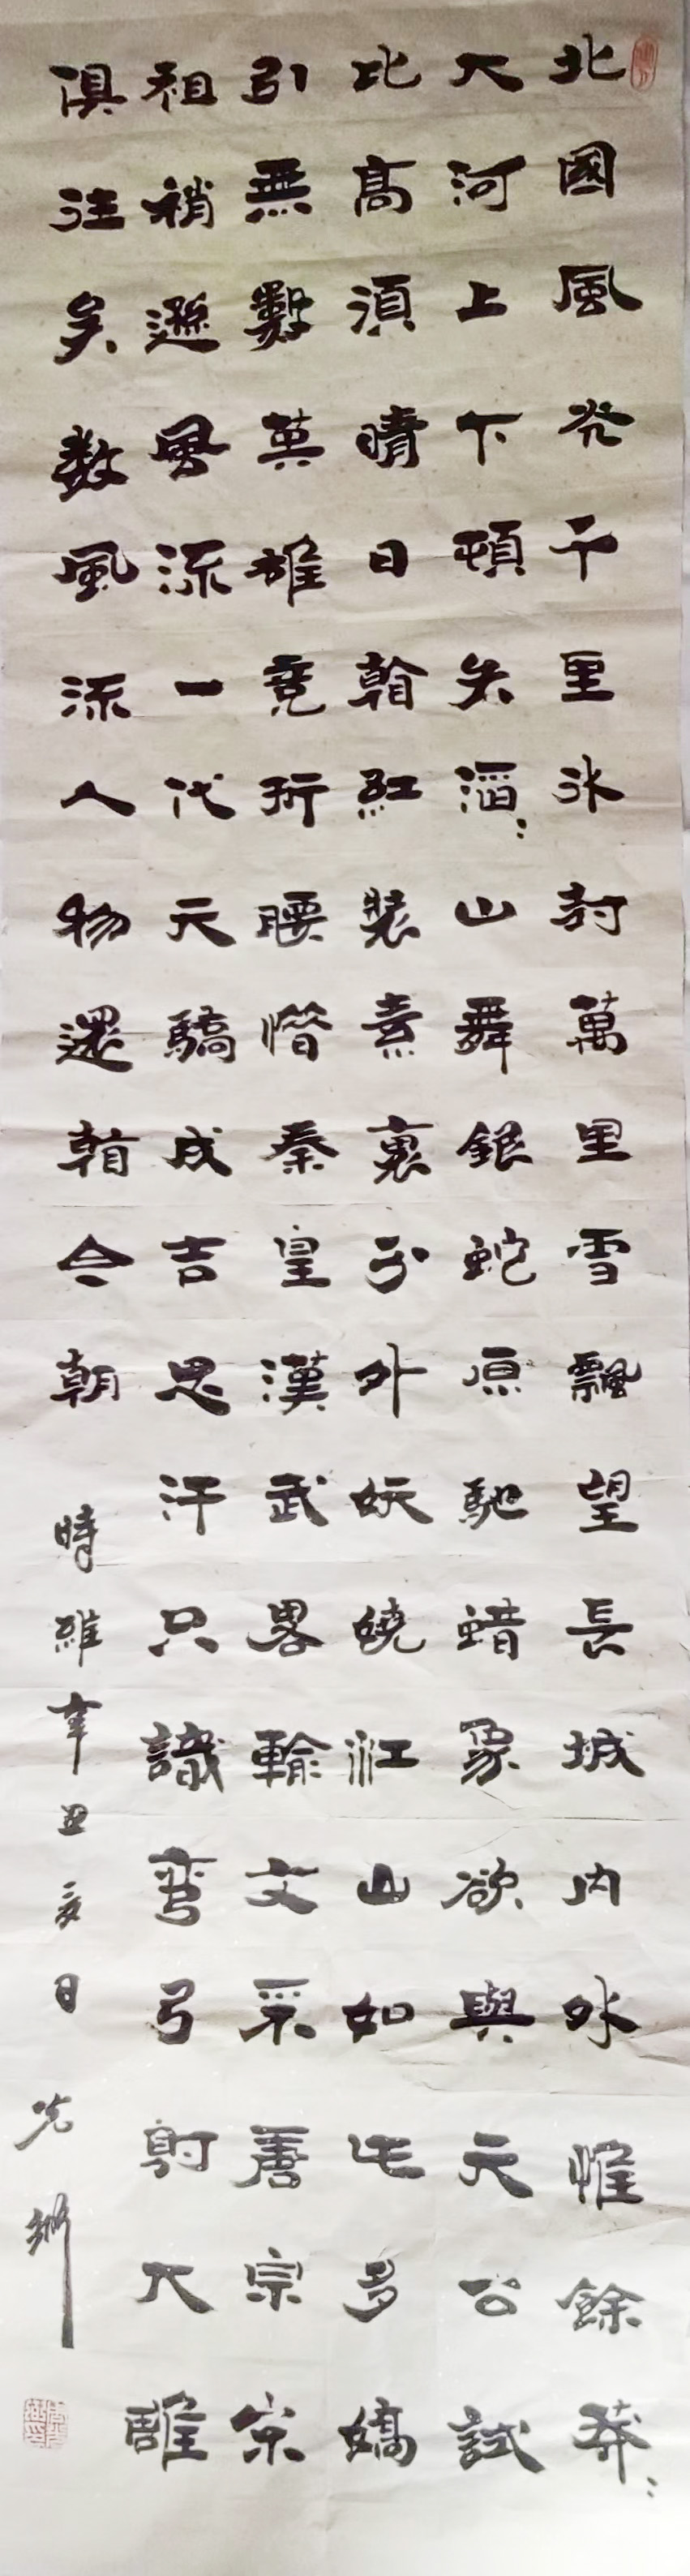 北國風光千里冰封萬里雪飄望長城内外惟餘莽:
大河上下頓失滔:山舞銀蛇原馳蜡象欲與天公試
比高須晴日看紅裝素裹分外妖嬈江山如此多嬌
引無數英雄竞折腰惜秦皇漢武畧輸文采唐宗宋
祖稍遜風流一代天驕成吉思汗只識彎弓射大雕
俱往矣数風流人物還看今朝
時維辛丑夏日